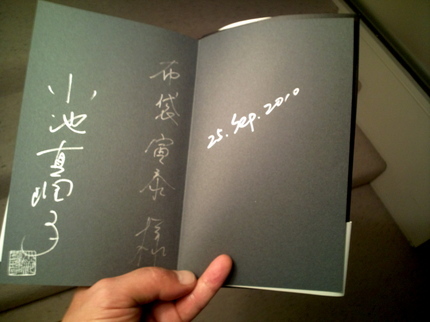 布袋寅泰 様
小池真理子
25. Sep. 2010